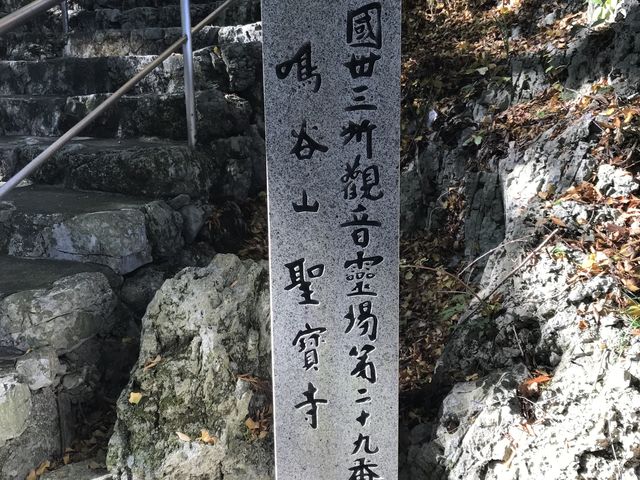 國丗三所觀音靈場第二十九番
鳴谷山聖寳寺